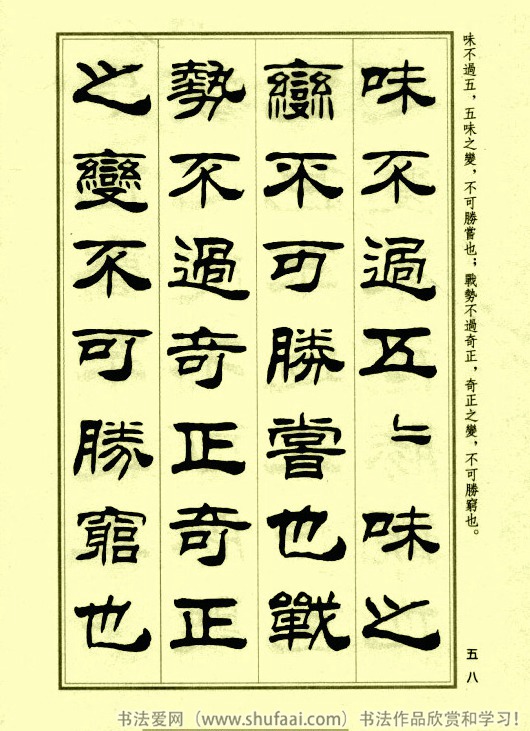 味不過五，五味之變，不可勝嘗也；戰勢不過奇正，奇正之變，不可勝窮也。
味不過五〻味之
變不可勝嘗也戰
勢不過奇正奇正
之變不可勝窮也
五八
书法爱网（www.shufaai.com）书法作品欣赏和学习！